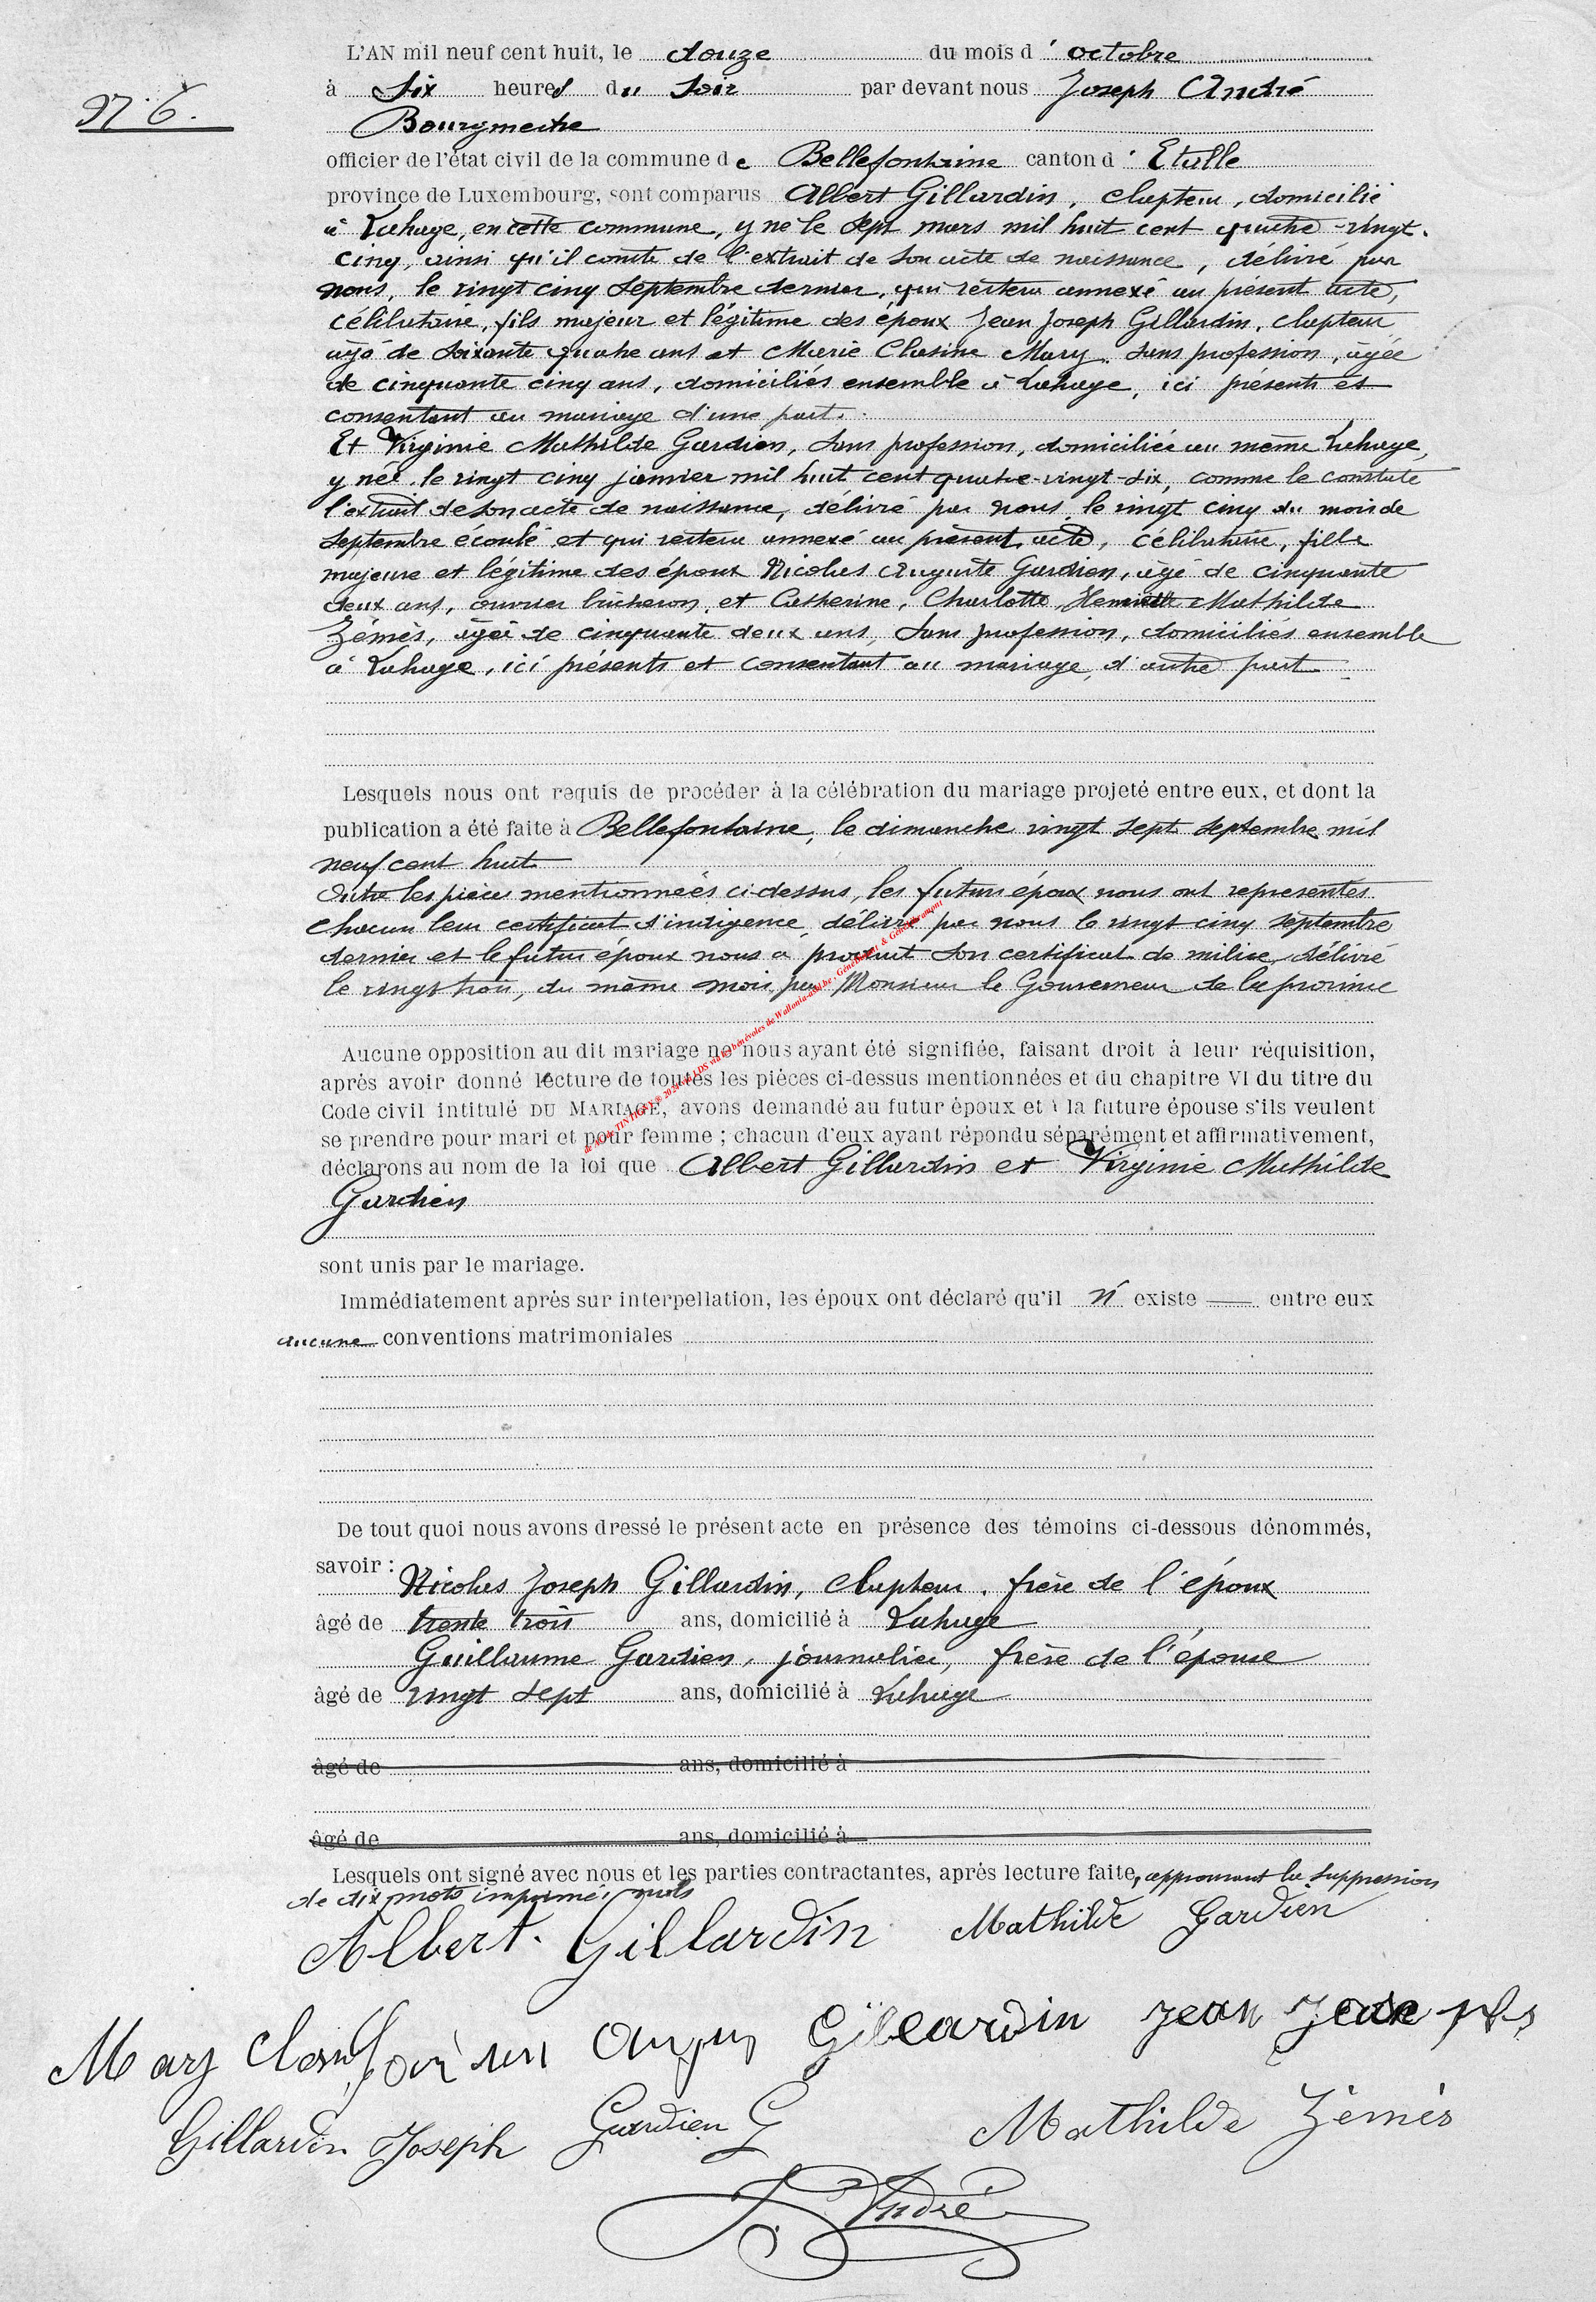 L'AN mil neuf cent huit, le douze du mois d' octobre
à six heures du soir par devant nous Joseph André
N° 6.
Bourgmestre
officier de l'état civil de la commune de Bellefontaine canton d' Etalle
province de Luxembourg, sont comparus Albert Gillardin, clapteur, domicilié
à Lahage, en cette commune, y né le sept mars mil huit cent quatre-vingt-
cinq, ainsi qu'il conste de l'extrait de son acte de naissance, délivré par
nous, le vingt cinq septembre dernier, qui restera annexé au présent acte,
célibataire, fils majeur et légitime des époux Jean Joseph Gillardin, clapteur
âgé de soixante quatre ans et Marie Mary, sans profession, âgée
de cinquante cinq ans, domiciliés ensemble à Lahage, ici présents et
consentant au mariage d'une part.
Et Virginie Mathilde Gardien, sans profession, domiciliée au même Lahage,
y née le vingt cinq janvier mil huit cent quatre-vingt-dix, comme le constate
l'extrait de son acte de naissance, délivré par nous, le vingt cinq du mois de
septembre écoulé et qui restera annexé au présent acte, célibataire, fille
majeure et légitime des époux Nicolas Auguste Gardien, âgé de cinquante
deux ans, ouvrier bûcheron, et Catherine, Charlotte, Henriette Mathilde
Zémès, âgée de cinquante deux ans, sans profession, domiciliés ensemble
à Lahage, ici présents et consentant au mariage, d'autre part
Lesquels nous ont requis de procéder à la célébration du mariage projeté entre eux, et dont la
publication a été faite à Bellefontaine, le dimanche vingt sept septembre mil
neuf cent huit
Outre les pièces mentionnées ci-dessus, les futurs époux nous ont représentés
chacun leur certificat d'indigence, délivré par nous le vingt cinq septembre
dernier et le futur époux nous a produit son certificat de milice, délivré
le vingt trois, du même mois, par Monsieur le Gouverneur de la province
Aucune opposition au dit mariage ne nous ayant été signifiée, faisant droit à leur réquisition,
après avoir donné lecture de toutes les pièces ci-dessus mentionnées et du chapitre VI du titre du
Code civil intitulé DU MARIAGE, avons demandé au futur époux et à la future épouse s'ils veulent
se prendre pour mari et pour femme ; chacun d'eux ayant répondu séparément et affirmativement,
déclarons au nom de la loi que Albert Gillardin et Virginie Mathilde
Gardien
sont unis par le mariage.
Immédiatement après sur interpellation, les époux ont déclaré qu'il n' existe entre eux
aucune conventions matrimoniales
De tout quoi nous avons dressé le présent acte en présence des témoins ci-dessous dénommés,
savoir : Nicolas Joseph Gillardin, clapteur, frère de l'époux
âgé de trente trois ans, domicilié à Lahage
Guillaume Gardien, journalier, frère de l'épouse
âgé de vingt sept ans, domicilié à Lahage
âgé de ans, domicilié à
âgé de ans, domicilié à
Lesquels ont signé avec nous et les parties contractantes, après lecture faite, approuvant la suppression
de dix mots imprimés nuls
Albert Gillardin Mathilde Gardien
Mary Gillardin Jean
Gillardin Joseph Gardien G Mathilde Zémès
J. André